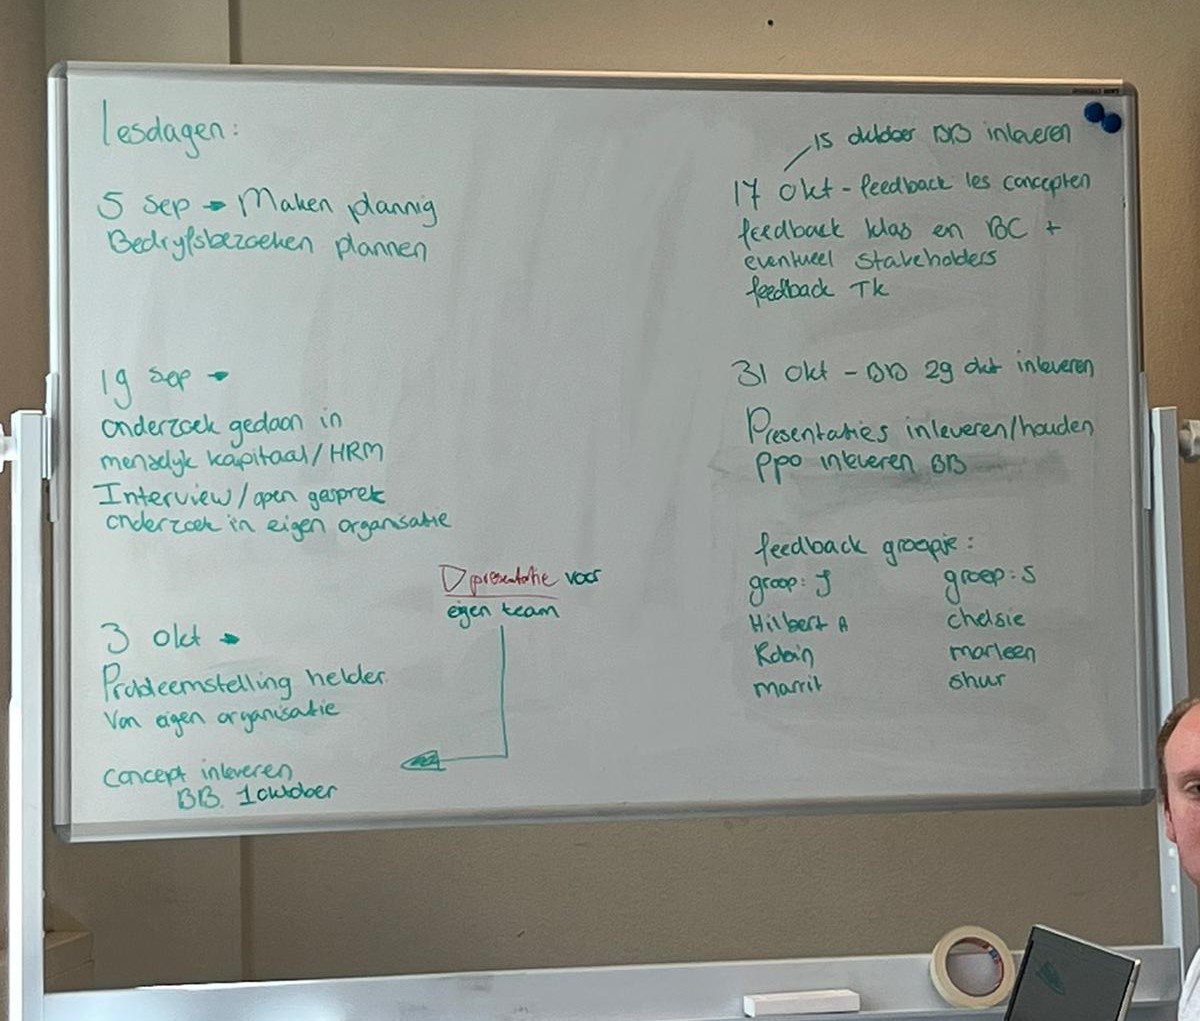 lesdagen:
5 sep → Maken plannig
Bedryfsbezoeken plannen
19 sep →
onderzoek gedaan in
menselyk kapitaal/HRM
Interview/open gesprek
onderzoek in eigen organisatie
presentatie voor
eigen team
3 okt →
Probleemstelling helder
Van eigen organisatie
concept inleveren
BB. 1 oktober
15 oktober BB inleveren
17 okt - feedback les concepten
feedback klas en BC +
eventueel Stakeholders
feedback Tk
31 okt - BB 29 okt inleveren
Presentaties inleveren/houden
PPO inleveren BB
feedback groepje:
groep: J
Hilbert A
Robin
marrit
groep: S
chelsie
marleen